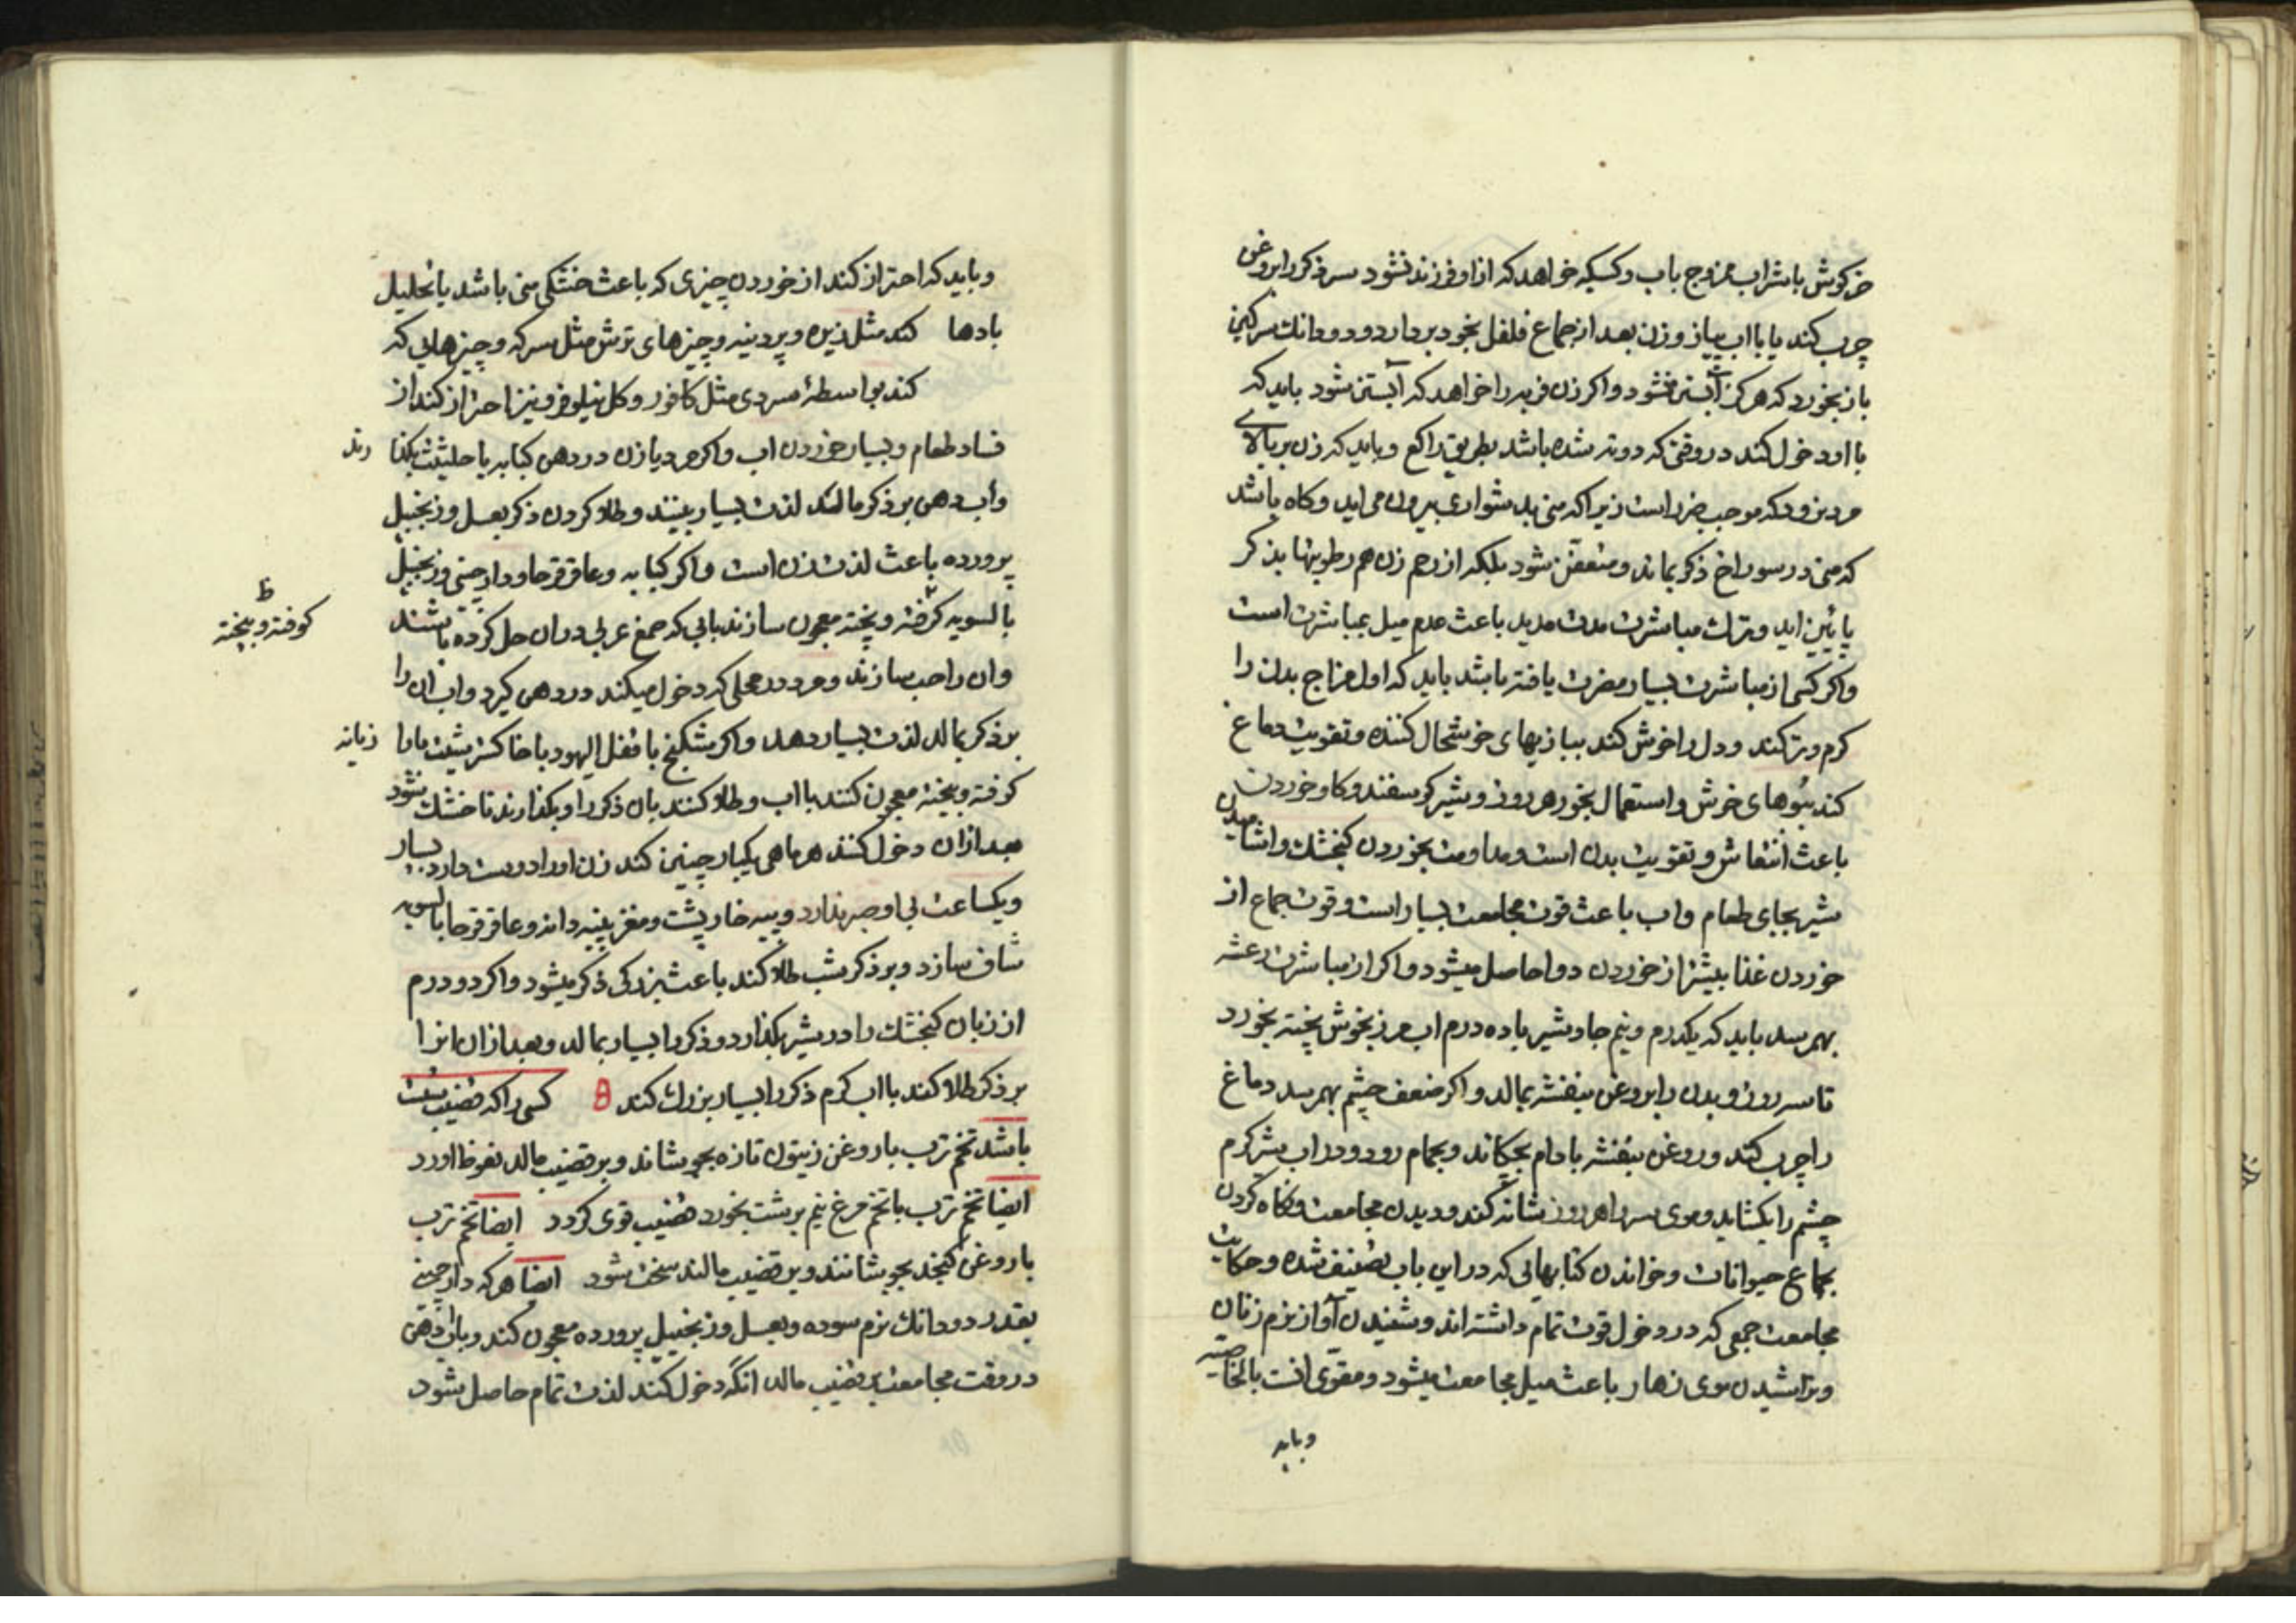 خرکوش با شراب ممزوج باب وکسیکه خواهد که ازاو فرزند نشود سر ذکر را بروغن
چرب کند یا بااب پیاز وزن بعد از جماع فلفل بخود بردارد ودو دانك سرکین
باز بخورد که هرکز آبستن نشود واکر زن فربه را خواهد که آبستن شود باید که
با او دخول کند در وقتی که دوته شده باشد بطریق راکع وباید که زن بر بالای
مرد نرود که موجب ضرر است زیرا که منی بدشواری بیرون می اید وکاه باشد
که منی در سوراخ ذکر بماند ومتعفن شود بلکه از رحم زن هم رطوبتها بذکر
پائین اید وترك مباشرت مدت مدید باعث عدم میل بمباشرت است
واکر کسی از مباشرت بسیار مضرت یافته باشد باید که اول مزاج بدن را
کرم وتر کند ودل را خوش کند ببازیهای خوشحال کننده وتقویت دماغ
کند ببوهای خوش واستعمال بخور هر روز وشیر کوسفند وکاو خوردن
باعث انتعاش وتقویت بدن است ومداومت بخوردن کنجشك واشامیدن
شیر بجای طعام واب باعث قوت مجامعت بسیار است وقوت جماع از
خوردن غذا بیشتر از خوردن دوا حاصل میشود واکر از مباشرت رعشه
بهمرسد باید که یکدرم ونیم جاوشیر با ده درم اب مرزنجوش پخته بخورد
تا سه روز وبدن را بروغن بنفشه بمالد واکر ضعف چشم بهمرسد دماغ
را چرب کند وروغن بنفشه بادام بچکاند وبحمام رود ودر اب شیر کرم
چشم را بکشاید وموی سر را هر روز شانه کند ودیدن مجامعت ونکاه کردن
بجماع حیوانات وخواندن کتابهائی که در این باب تصنیف شده وحکایت
مجامعت جمعی که در دخول قوت تمام داشته اند وشنیدن آواز نرم زنان
وتراشیدن موی زهار باعث میل مجامعت میشود ومقوی انست بالخاصیه
وباید
وباید که احتراز کند از خوردن چیزی که باعث خشکی منی باشد یا تحلیل
بادها کند مثل زیره وپودینه وچیزهای ترش مثل سرکه وچیزهایی که
کند بواسطهٔ سردی مثل کافور وکل نیلوفر ونیز احتراز کند از
فساد طعام وبسیار خوردن اب واکر مرد یا زن در دهن کبابه یا حلیتیت بکذا رند
واب دهن بر ذکر مالند لذت بسیار بینند وطلا کردن ذکر بعسل وزنجبیل
پرورده باعث لذت زن است واکر کبابه وعاقرقرحا ودارچینی وزنجبیل
بالسویه کرفته وپخته معجون سازند بابی که صمغ عربی در ان حل کرده باشند
ط
کوفته وبیخته
وان را حب سازند ومرد در محلی که دخول میکند در دهن کیرد واب ان را
بر ذکر بمالد لذت بسیار دهد واکر سکبینج با مقل الیهود با خاکستر پشت مادا زیانه
کوفته وبیخته معجون کنند بااب وطلا کنند بان ذکر را وبکذارند تا خشك شود
بعد ازان دخول کنند هر ماهی یکبار چنین کند زن اورا دوست دارد بسیار
ویکساعت بی او صبر ندارد وپیه خارپشت ومغز پنبه دانه وعاقرقرحا بالسویه
شاف سازد وبر ذکر شب طلا کند باعث بزرکی ذکر میشود واکر دو درم
از زبان کنجشك را در شیر بکذارد وذکر را بسیار بمالد وبعد ازان انرا
بر ذکر طلا کند بااب کرم ذکر را بسیار بزرك کند کسی را که قضیب سست
باشد تخم ترب با روغن زیتون تازه بجوشاند وبر قضیب مالد نعوظ اورد
ایضا تخم ترب با تخم مرغ نیم برشت بخورد قضیب قوی کردد ایضا تخم ترب
با روغن کنجد بجوشانند وبر قضیب مالند سخت شود ایضا هرکه دارچینی
بقدر دو دانك نرم سوده وبعسل وزنجبیل پرورده معجون کند وباب دهن
در وقت مجامعت بر قضیب مالد انکه دخول کند لذت تمام حاصل شود